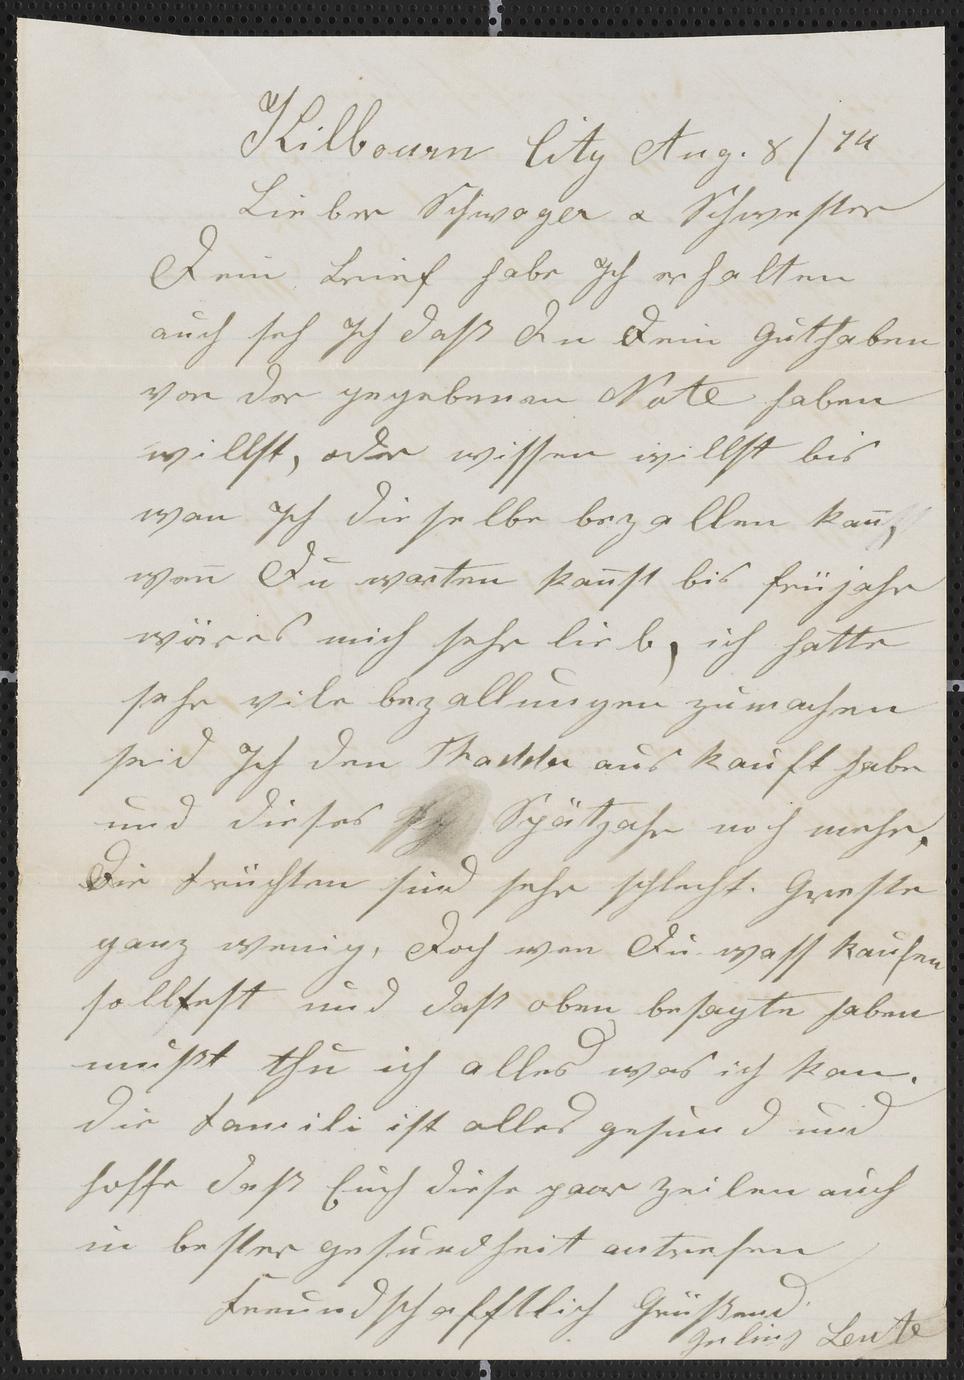 Kilbourn City Aug. 8/74
Lieber Schwager & Schwester
Dein brief habe Ich erhalten
auch seh Ich daß Du Dein guthaben
von der gegebenen Note haben
willst, oder wissen willst bis
wan Ich dieselbe bezallen kan̄,
wen̄ Du warten kan̄st bis früjahr
wäre es mich sehr lieb, ich hatte
sehr vile bezallungen zumachen
seid Ich den aus kauft habe
und dieses Spätjahr noch mehr,
Die früchten sind sehr schlecht. Gerste
ganz wenig, Doch wen Du wass kaufen
solltest und daß oben besagte haben
mußt thu ich alles was ich kan.
die familie ist alles gesund und
hoffe daß Euch diese paar zeilen auch
in bester gesundheit antrefen
Freundschafftlich Grüßend
Julius Leute